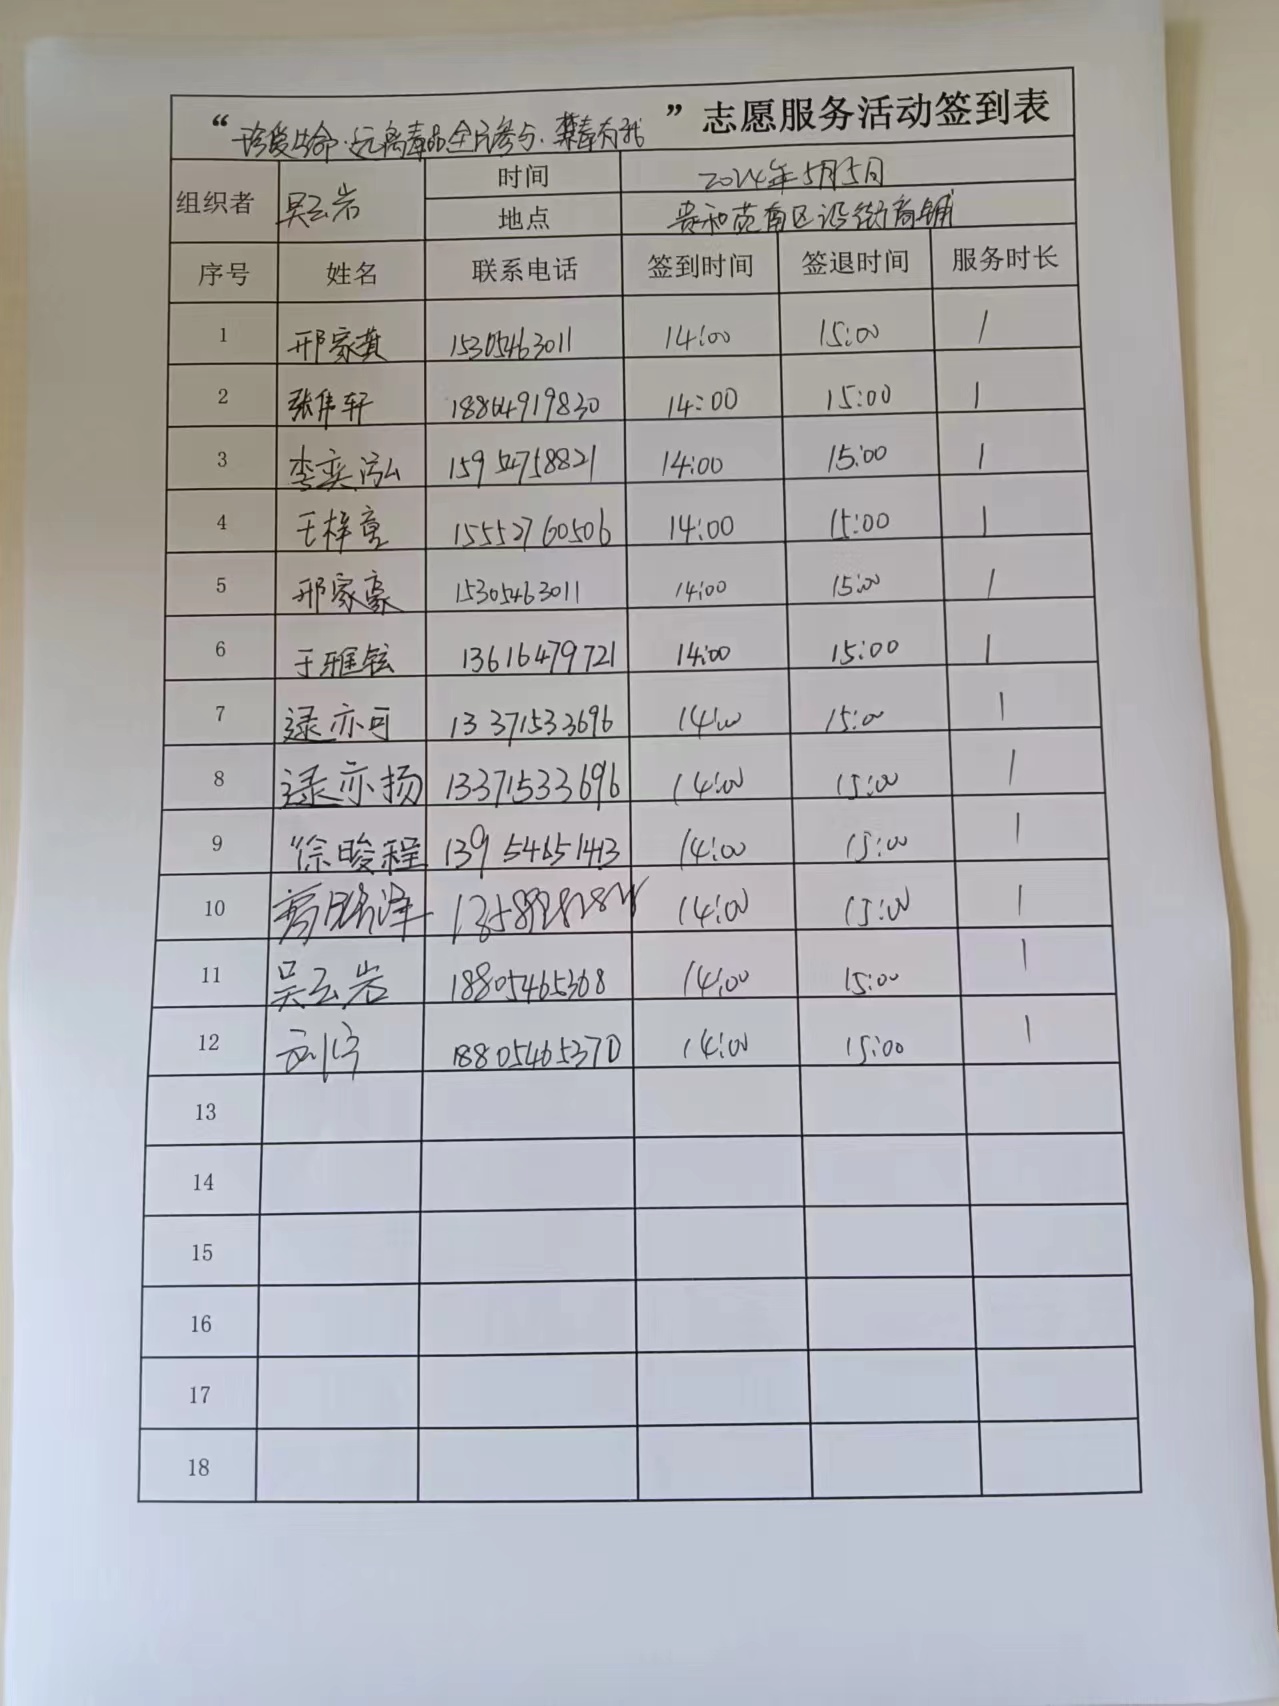 “珍爱生命·远离毒品全民参与·禁毒有我”志愿服务活动签到表
组织者 吴云岩 时间 2024年5月5日
地点 贵和苑南区沿街商铺
序号 姓名 联系电话 签到时间 签退时间 服务时长
1 邢家淇 15305463011 14:00 15:00 1
2 张隽轩 18864919830 14:00 15:00 1
3 李奕泓 15954758821 14:00 15:00 1
4 王梓童 15552760506 14:00 15:00 1
5 邢家豪 15305463011 14:00 15:00 1
6 于雅铉 13616479721 14:00 15:00 1
7 逯亦可 13371533696 14:00 15:00 1
8 逯亦扬 13371533696 14:00 15:00 1
9 徐晙程 13954651413 14:00 15:00 1
10 14:00 15:00 1
11 吴云岩 18805465368 14:00 15:00 1
12 18805465370 14:00 15:00 1
13
14
15
16
17
18